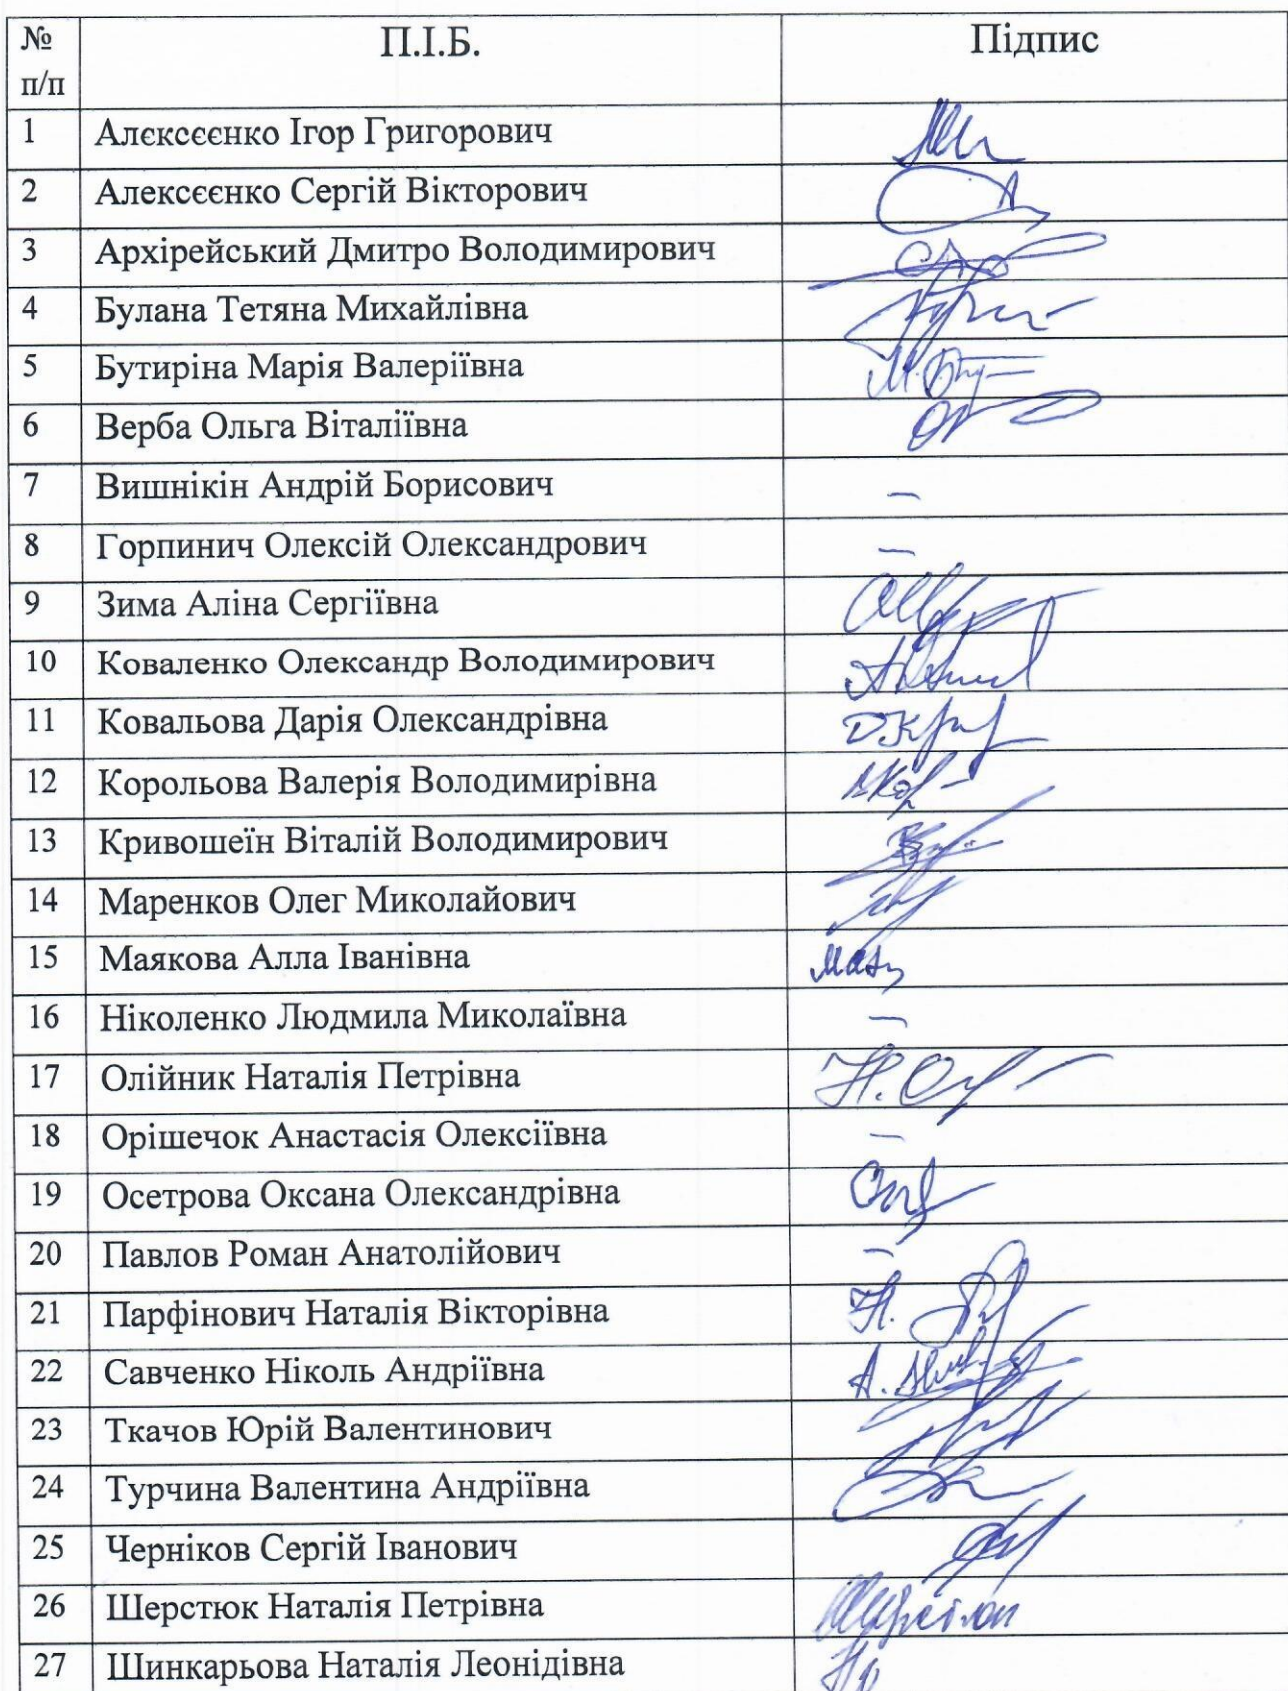 № п/п П.І.Б. Підпис
1 Алєксєєнко Ігор Григорович
2 Алексєєнко Сергій Вікторович
3 Архірейський Дмитро Володимирович
4 Булана Тетяна Михайлівна
5 Бутиріна Марія Валеріївна
6 Верба Ольга Віталіївна
7 Вишнікін Андрій Борисович –
8 Горпинич Олексій Олександрович –
9 Зима Аліна Сергіївна
10 Коваленко Олександр Володимирович
11 Ковальова Дарія Олександрівна
12 Корольова Валерія Володимирівна
13 Кривошеїн Віталій Володимирович
14 Маренков Олег Миколайович
15 Маякова Алла Іванівна
16 Ніколенко Людмила Миколаївна –
17 Олійник Наталія Петрівна
18 Орішечок Анастасія Олексіївна –
19 Осетрова Оксана Олександрівна
20 Павлов Роман Анатолійович –
21 Парфінович Наталія Вікторівна
22 Савченко Ніколь Андріївна
23 Ткачов Юрій Валентинович
24 Турчина Валентина Андріївна
25 Черніков Сергій Іванович
26 Шерстюк Наталія Петрівна
27 Шинкарьова Наталія Леонідівна